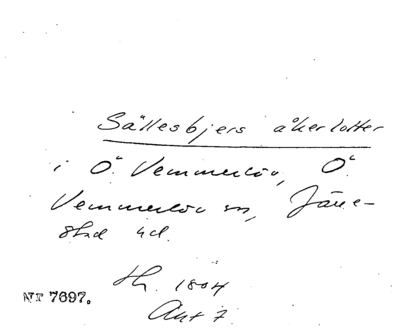 Sällesbjers åkerlotter
i Ö. Vemmerlöv, Ö.
Vemmerlöv sn, Järre-
stad hd.
Hr. 1804
Akt 7
NR 7697.